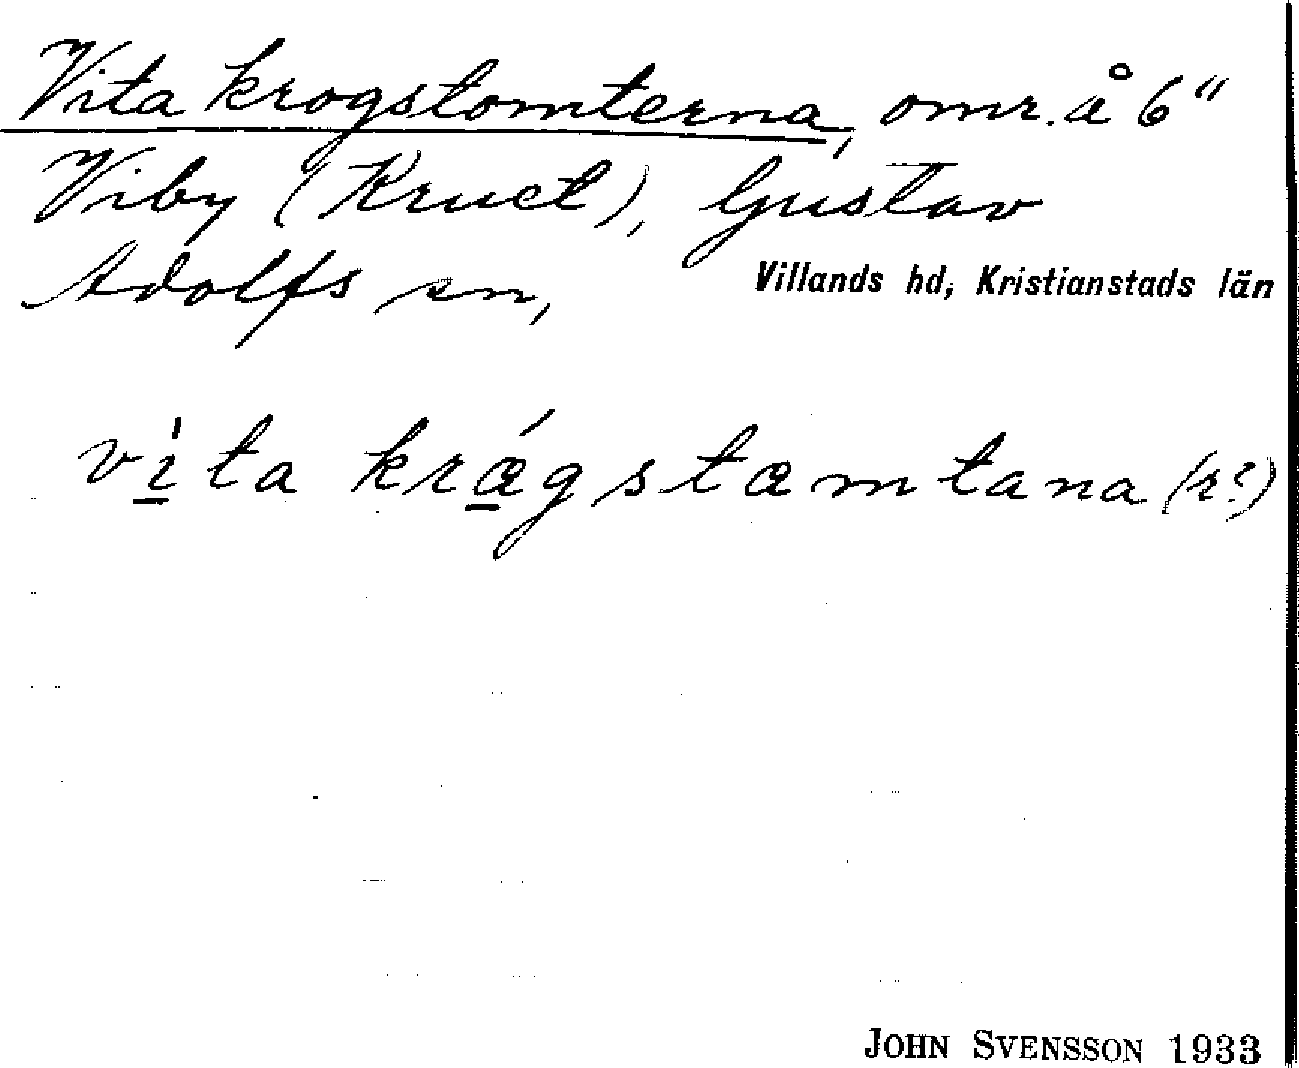 Vita krogstomterna, omr. å 6"
Viby (Kruct), Gustav
Adolfs sn,
Villands hd, Kristianstads län
vìta krǽgstæmtana (r?)
JOHN SVENSSON 1933